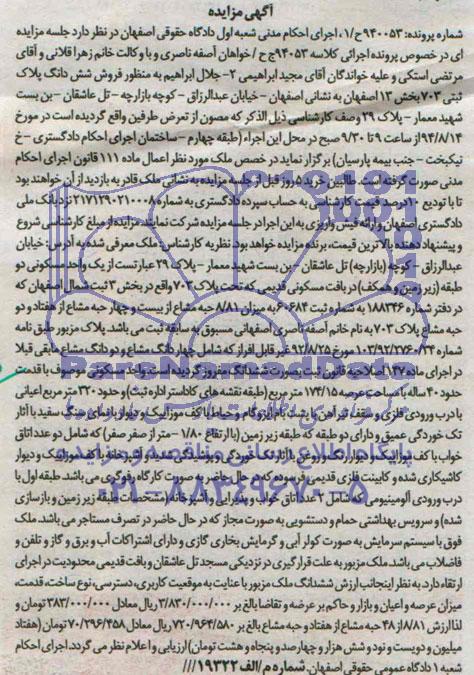 آگهی مزایده
شماره پرونده: ۹۴۰۰۵۳ح/۱، اجرای احکام مدنی شعبه اول دادگاه حقوقی اصفهان در نظر دارد جلسه مزایده
ای در خصوص پرونده اجرائی کلاسه ۹۴۰۰۵۳ج ح / خواهان آصفه ناصری و با وکالت خانم زهرا قلانی و آقای
مرتضی استکی و علیه خواندگان آقای مجید ابراهیمی ۲- جلال ابراهیم به منظور فروش شش دانگ پلاک
ثبتی ۷۰۳ بخش ۱۳ اصفهان به نشانی اصفهان – خیابان عبدالرزاق – کوچه بازارچه – تل عاشقان – بن بست
شهید معمار – پلاک ۲۹ وصف کارشناسی ذیل الذکر که مصون از تعرض طرفین واقع گردیده است در مورخ
۹۴/۸/۱۴ از ساعت ۹ تا ۹/۳۰ صبح در محل این اجراء (طبقه چهارم – ساختمان اجرای احکام دادگستری – خ
نیکبخت – جنب بیمه پارسیان) برگزار نماید در خصص ملک مورد نظر اعمال ماده ۱۱۱ قانون اجرای احکام
مدنی صورت گرفته است. طالبین خرید ۵ روز قبل از جلسه مزایده به نشانی ملک قادر به بازدید از آن خواهند بود
تا با تودیع ۱۰ درصد قیمت کارشناسی به حساب سپرده دادگستری به شماره ۲۱۷۱۲۹۰۲۱۰۰۰۸ نزد بانک ملی
دادگستری اصفهان و ارائه فیش واریزی به این اجرا در جلسه مزایده شرکت نمایند. مزایده از مبلغ کارشناسی شروع
و پیشنهاد دهنده بالاترین قیمت، برنده مزایده خواهد بود. نظریه کارشناس: ملک معرفی شده به آدرس: خیابان
عبدالرزاق – کوچه (بازارچه) تل عاشقان – بن بست شهید معمار – پلاک ۲۹ عبارتست از یک واحد مسکونی دو
طبقه (زیر زمین و همکف) در بافت مسکونی قدیمی که تحت پلاک ۷۰۳ واقع در بخش ۳ ثبت شمال اصفهان که
در دفتر شماره ۱۸۸۳۴۶ به شماره ثبت ۶۰۶۸۴ به میزان ۸/۸۱ حبه مشاع از بیست و چهار حبه مشاع از هفتاد و دو
حبه مشاع پلاک ۷۰۳ به نام خانم آصفه ناصری اصفهانی مسبوق به سابقه ثبت می باشد. پلاک مزبور طبق نامه
۱۰۳/۹۲/۲۷۶۰۲۴ مورخ ۹۲/۸/۲۵ غیر قابل افراز که شامل چهار دانگ مشاع و دو دانگ مشاع مابقی قبلا
در اجرای ماده ۱۴۷ اصلاحیه قانون ثبت بصورت ششدانگ مفروز گردیده است. واحد مسکونی موصوف با قدمت
حدود ۴۰ ساله با مساحت عرصه ۱۷۴/۱۵ متر مربع (طبقه نقشه های کاداستر اداره ثبت) و حدود ۳۲۰ متر مربع اعیانی
با درب ورودی فلزی و سقف تیرآهن با پشت بام ایزوگام و حیاط با کف موزائیک و دیوار با نمای سنگ سفید با آثار
تک خوردگی عمیق و دارای دو طبقه که طبقه زیر زمین (با ارتفاع ۱/۸۰ – متر از صفر صفر) که شامل دو عدد اتاق
خواب با کف موزائیک و دیوار رنگ و روغن با آثار تک خوردگی و پوسیدگی شدید و آشپزخانه با کف موزائیک و دیوار
کاشیکاری شده و کابینت فلزی قدیمی فرسوده که در حال حاضر به صورت کارگاه رفوگری می باشد. طبقه اول با
درب ورودی آلومینیومی که شامل ۲ عدد اتاق خواب و پذیرایی و آشپزخانه (مشخصات طبقه زیر زمین و بازسازی
شده) و سرویس بهداشتی حمام و دستشویی به صورت مجاز که در حال حاضر در تصرف مستاجر می باشد. ملک
فوق با سیستم سرمایش به صورت کولر آبی و گرمایش بخاری گازی و دارای اشتراکات آب و برق و گاز و تلفن و
فاضلاب می باشد. ملک مزبور به علت قرار گیری در نزدیکی مسجد تل عاشقان و بافت قدیمی محدودیت در اجرای
ارتقاء دارد. به نظر اینجانب ارزش ششدانگ ملک مزبور با عنایت به موقعیت کاربری، دسترسی، نوع ساخت، قدمت،
میزان عرصه و اعیان و بازار و حاکم بر عرضه و تقاضا بالغ بر ۳/۸۳۰/۰۰۰/۰۰۰ ریال معادل ۳۸۳/۰۰۰/۰۰۰ تومان و
لذا ارزش ۸/۸۱ از ۴۸ حبه مشاع از هفتاد و دو حبه مشاع بالغ بر ۷۲۰/۹۶۴/۵۸۰ ریال معادل ۷۰/۲۹۶/۴۵۸ تومان (هفتاد
میلیون و دویست و نود و شش هزار و چهارصد و پنجاه و هشت تومان) ارزیابی و اعلام نظر می گردد. اجرای احکام
شعبه ۱ دادگاه عمومی حقوقی اصفهان. شماره م/الف ۱۹۳۲۲///
ParsNamadData
۰۲۱-۸۸۳۴۹۶۷۰-۵